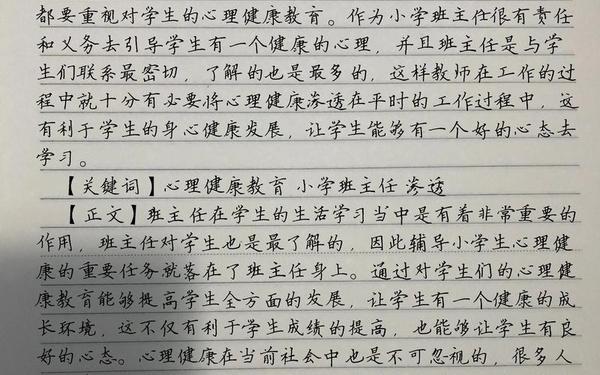 都要重视对学生的心理健康教育。作为小学班主任很有责任
和义务去引导学生有一个健康的心理，并且班主任是与学
生们联系最密切，了解的也是最多的，这样教师在工作的过
程中就十分有必要将心理健康渗透在平时的工作过程中，这
有利于学生的身心健康发展，让学生能够有一个好的心态去
学习。
【关键词】心理健康教育 小学班主任 渗透
【正文】班主任在学生的生活学习当中是有着非常重要的
作用，班主任对学生也是最了解的，因此辅导小学生心理健
康的重要任务就落在了班主任身上。通过对学生们的心理健
康教育能够提高学生全方面的发展，让学生有一个健康的成
长环境，这不仅有利于学生成绩的提高，也能够让学生有良
好的心态。心理健康在当前社会中也是不可忽视的，很多人